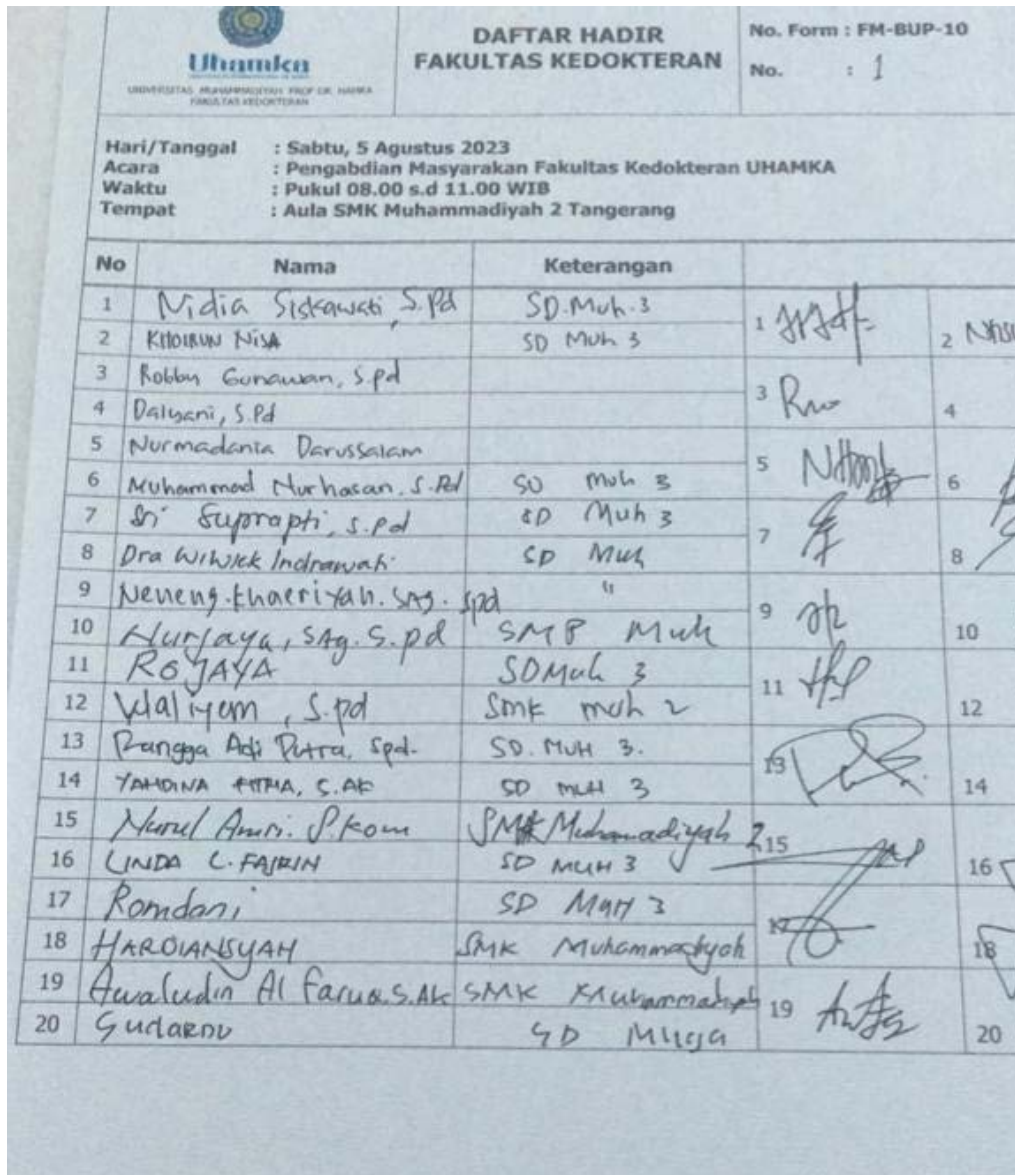 Uhamka
UNIVERSITAS MUHAMMADIYAH PROF DR. HAMKA
FAKULTAS KEDOKTERAN
DAFTAR HADIR
FAKULTAS KEDOKTERAN
No. Form : FM-BUP-10
No. : 1
Hari/Tanggal : Sabtu, 5 Agustus 2023
Acara : Pengabdian Masyarakan Fakultas Kedokteran UHAMKA
Waktu : Pukul 08.00 s.d 11.00 WIB
Tempat : Aula SMK Muhammadiyah 2 Tangerang
No Nama Keterangan
1 Nidia Siskawati, S.Pd SD.Muh.3 1
2 KHOIRUN NISA SD MUH 3 2
3 Robby Gunawan, S.pd 3
4 Dalyani, S.Pd 4
5 Nurmadania Darussalam 5
6 Muhammad Nurhasan, S.Pd SD Muh 3 6
7 Sri Suprapti, S.pd SD Muh 3 7
8 Dra Wiwiek Indrawati SD Muh 8
9 Neneng.khaeriyah.SAg.Spd " 9
10 Nurjaya, SAg.S.pd SMP Muh 10
11 ROJAYA SDMuh 3 11
12 Waliyem, S.pd Smk muh 2 12
13 Rangga Adi Putra, Spd. SD.MUH 3. 13
14 YAHDINA FITRIA, S.AK SD MUH 3 14
15 Nurul Amri. S.Kom SMK Muhamadiyah 2 15
16 LINDA L. FAJRIN SD MUH 3 16
17 Romdani SD MUH 3 17
18 HARDIANSYAH SMK Muhammadiyah 18
19 Awaludin Al Faruq.S.Ak SMK Muhammadiyah 19
20 Sudarno SD Muga 20